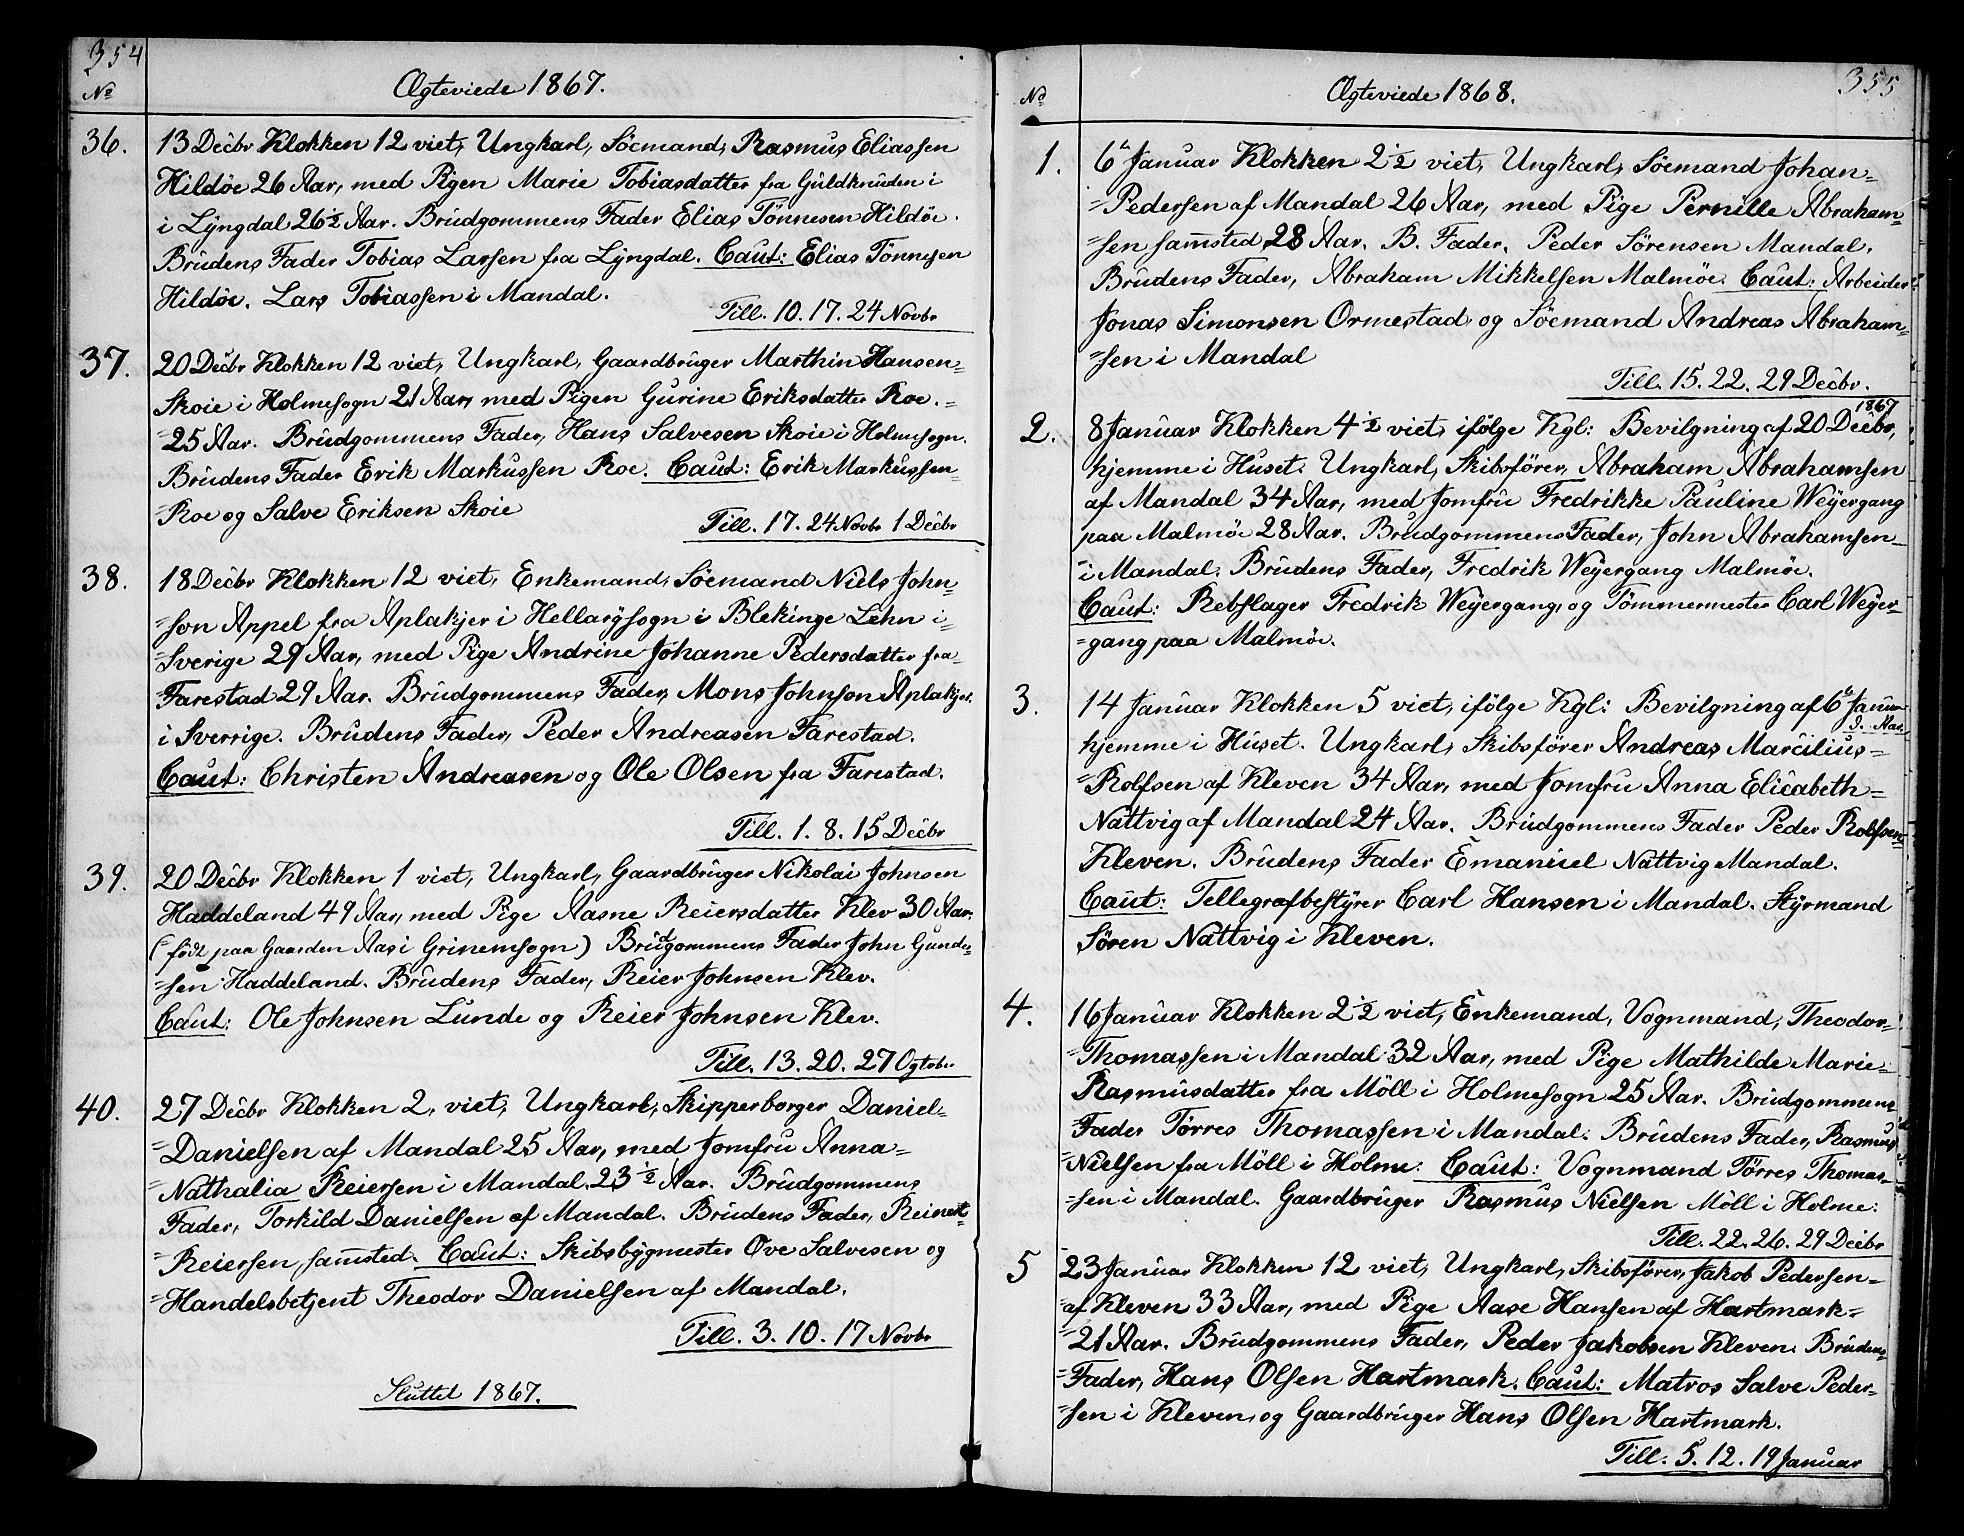 354
No
Ægteviede 1867.
36.
13 Decbr Klokken 12 viet, Ungkarl, Söemand, Rasmus Eliassen
Hildöe 26 Aar, med Pigen Marie Tobiasdatter fra Guldknuden i
i Lyngdal 26½ Aar. Brudgommens Fader Elias Tönnesen Hildöe.
Brudens Fader Tobias Larsen fra Lyngdal. Caut: Elias Tönnesen
Hildöe. Lars Tobiassen i Mandal.
Till. 10. 17. 24 Novbr
37.
20 Decbr Klokken 12 viet, Ungkarl, Gaardbruger Marthin Hansen=
Skoie i Holmesogn 21 Aar, med Pigen Gurine Eriksdatter Roe.=
=25 Aar. Brudgommens Fader, Hans Salvesen Skoie i Holmesogn.
Brudens Fader Erik Markussen Roe. Caut: Erik Markussen=
=Roe og Salve Eriksen Skoie
Till. 17. 24 Novbr 1 Decbr
38.
18 Decbr Klokken 12 viet, Enkemand, Söemand Niels John=
=son Appel fra Aplakjer i Hellarysogn i Blekinge Lehn i=
=Sverige 29 Aar, med Pige Andrine Johanne Pedersdatter fra=
=Farestad 29 Aar. Brudgommens Fader, Mons Johnson Aplakjer
i Sverrige. Brudens Fader, Peder Andreasen Farestad.
Caut: Christen Andreasen og Ole Olsen fra Farestad.
Till. 1. 8. 15 Decbr
39.
20 Decbr Klokken 1 viet, Ungkarl, Gaardbruger Nikolai Johnsen
Haddeland 49 Aar, med Pige Aasne Reiersdatter Klev 30 Aar.
(födt paa Gaarden Aas i Grinemsogn) Brudgommens Fader John Gunde=
=sen Haddeland. Brudens Fader, Reier Johnsen Klev.
Caut: Ole Johnsen Lunde og Reier Johnsen Klev.
Till. 13. 20. 27 Ogtobr
40.
27 Decbr Klokken 2, viet, Ungkarl, Skipperborger Daniel=
=Danielsen af Mandal 25 Aar, med Jomfru Anna=
=Nathalia Reiersen i Mandal. 23½ Aar. Brudgommens
Fader, Torkild Danielsen af Mandal. Brudens Fader, Reinert=
=Reiersen, samsted. Caut: Skibsbygmester Ove Salvesen og
=Handelsbetjent Theodor Danielsen af Mandal.
Till. 3. 10. 17 Novbr
Sluttet 1867.
355
No
Ægteviede 1868.
1.
6te Januar Klokken 2½ viet, Ungkarl, Söemand Johan=
=Pedersen af Mandal 26 Aar, med Pige Pernille Abraham=
=sen samsted 28 Aar. B. Fader. Peder Sörensen Mandal.
Brudens Fader, Abraham Mikkelsen Malmöe. Caut: Arbeider
Jonas Simonsen Ormestad, og Söemand Andreas Abraham=
=sen i Mandal
Till. 15. 22. 29 Decbr.
2.
8 Januar Klokken 4½ viet, ifölge Kgl: Bevilgning af 20 Decbr, 1867
hjemme i Huset. Ungkarl, Skibsförer, Abraham Abrahamsen
af Mandal 34 Aar, med Jomfru Fredrikke Pauline Weyergang
paa Malmöe 28 Aar. Brudgommens Fader, John Abrahamsen=
=i Mandal. Brudens Fader, Fredrik Weyergang Malmöe.
Caut: Rebslager Fredrik Weyergang, og Tömmermester Carl Weyer=
=gang paa Malmöe.
3.
14 Januar Klokken 5 viet, ifölge Kgl: Bevilgning af 6te Januar
d. Aar
hjemme i Huset. Ungkarl, Skibsförer Andreas Marcilius=
=Rolfsen af Kleven 34 Aar, med Jomfru Anna Elicabeth=
Nattvig af Mandal 24 Aar. Brudgommens Fader Peder Rolfsen=
Kleven. Brudens Fader Emanuel Nattvig Mandal.
Caut: Tellegrafbestyrer Carl Hansen i Mandal. Styrmand
Sören Nattvig i Kleven.
4.
16 Januar Klokken 2½ viet, Enkemand, Vognmand, Theodor=
=Thomassen i Mandal 32 Aar, med Pige Mathilde Marie=
Rasmusdatter fra Möll i Holmesogn 25 Aar. Brudgommens=
=Fader Törres Thomassen i Mandal. Brudens Fader, Rasmus
=Nielsen fra Möll i Holme. Caut: Vognmand Törres Thomas=
=sen i Mandal. Gaardbruger Rasmus Nielsen Möll i Holme.
Till. 22. 26. 29 Decbr
5
23 Januar Klokken 12 viet, Ungkarl, Skibsförer, Jakob Pedersen=
=af Kleven 33 Aar, med Pige Aase Hansen af Hartmark=
=21 Aar. Brudgommens Fader, Peder Jakobsen Kleven. Brudens=
=Fader, Hans Olsen Hartmark. Caut: Matros Salve Peder=
=sen i Kleven, og Gaardbruger Hans Olsen Hartmark.
Till. 5. 12. 19 Januar